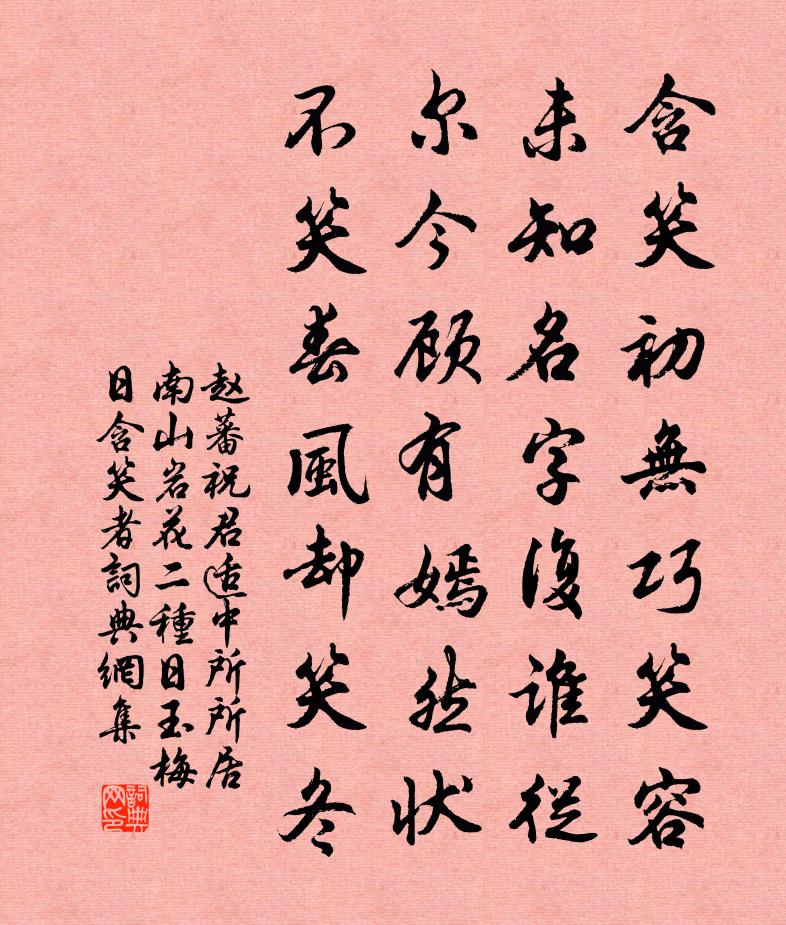 含笑初無巧笑容
未知名字復誰從
尔今顾有嫣然状
不笑春風却笑冬
赵蕃祝君适中所所居
南山岩花二種日玉梅
日含笑者詞典網集
詞典网印